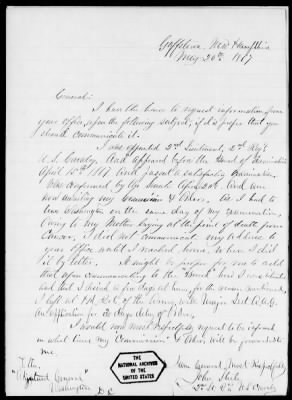 Goffstown, New Hampshire
May 20th 1867
General:
I have the honor to request information from
your office, upon the following subject, if it is proper that you
should communicate it.
I was appointed 2nd Lieutenant, 2nd Regt
U.S. Cavalry. And appeared before the Board of Examination
April 15th 1867 And passed a satisfactory examination
Was confirmed by the Senate April 20th. And am
now awaiting my Commission & Orders. As I had to
leave Washington on the same day of my examination,
Owing to my Mother laying at the point of death from
Cancer, I did not communicate my address to
your office until I reached home, when I did
it by letter. It might be proper for me to add
that upon communicating to the Board how I was situated
and that I desired a few days at home, for the reason mentioned,
I left at Hd. Qrs of the Army, with Major Leet A.A.G.
An application for 30 days delay of Orders.
I would now most respectfully request to be informed
at what time my Commission & Orders will be forwarded to
me.
I am General, Most Respectfully
John
2nd Lt. 2nd U.S. Cavalry
To the
"Adjutant General"
Washington D.C.
THE
NATIONAL ARCHIVES
OF THE
UNITED STATES